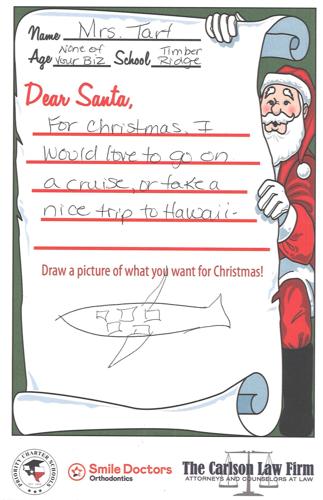 Name Mrs. Tart
Age None of Your Biz School Timber Ridge
Dear Santa,
For Christmas, I
would love to go on
a cruise, or take a
nice trip to Hawaii-
Draw a picture of what you want for Christmas!
PRIORITY CHARTER SCHOOLS
Smile Doctors
Orthodontics
The Carlson Law Firm
ATTORNEYS AND COUNSELORS AT LAW